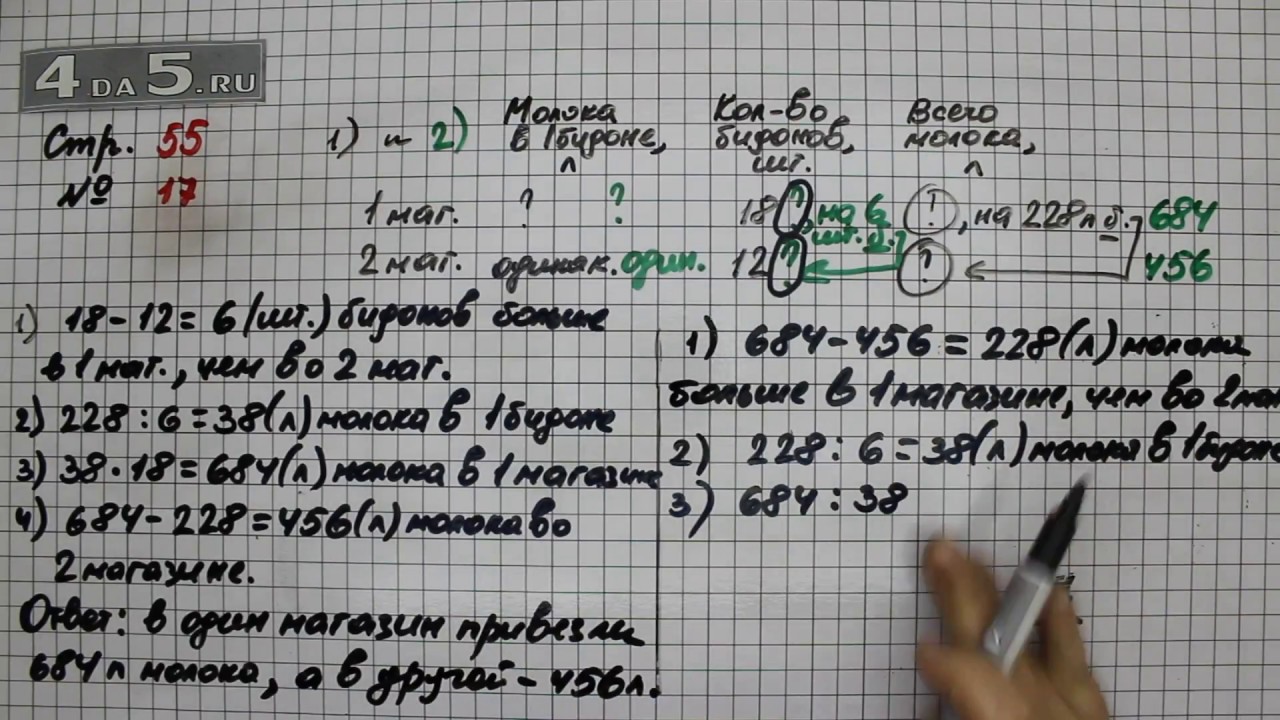 4DA5.RU
Стр. 55
№ 17
1) и 2)
Молока
в 1 бидоне,
л
Кол-во
бидонов,
шт.
Всего
молока,
л
1 маг. ? ? 18 ? , на 6 шт. б. ? , на 228 л б. 684
2 маг. одинак. один. 12 ? ? 456
1) 18 - 12 = 6 (шт.) бидонов больше
в 1 маг., чем во 2 маг.
2) 228 : 6 = 38 (л) молока в 1 бидоне
3) 38 · 18 = 684 (л) молока в 1 магазине
4) 684 - 228 = 456 (л) молока во
2 магазине.
Ответ: в один магазин привезли
684 л молока, а в другой - 456 л.
1) 684 - 456 = 228 (л) молока
больше в 1 магазине, чем во 2 маг
2) 228 : 6 = 38 (л) молока в 1 бидоне
3) 684 : 38